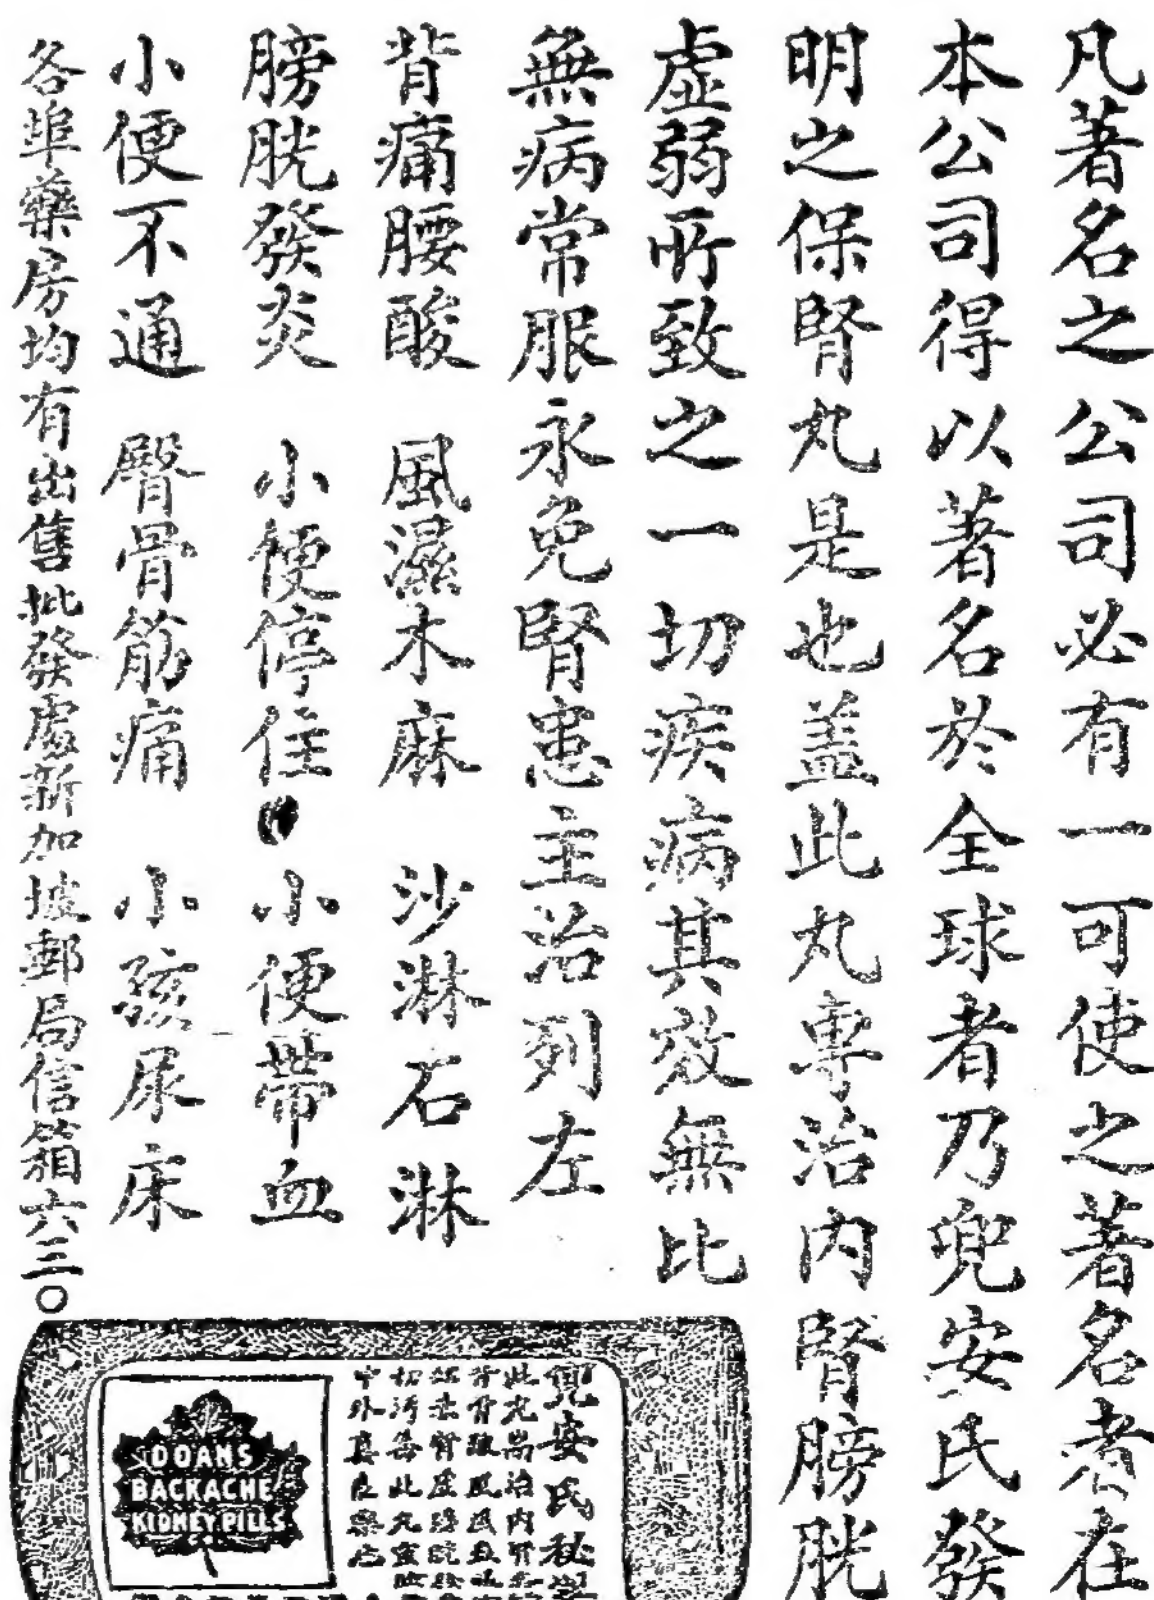 凡著名之公司必有一可使之著名者在
本公司得以著名於全球者乃兜安氏發
明之保腎丸是也盖此丸專治內腎膀胱
虛弱所致之一切疾病其效無比
無病常服永免腎患主治列左
背痛腰酸 風濕木麻 沙淋石淋
膀胱發炎 小便停住 小便帶血
小便不通 臀骨筋痛 小孩尿床
各埠藥房均有出售批發處新加坡郵局信箱六三〇
兜安氏秘
此丸耑治內腎
DOANS
BACKACHE
KIDNEY PILLS